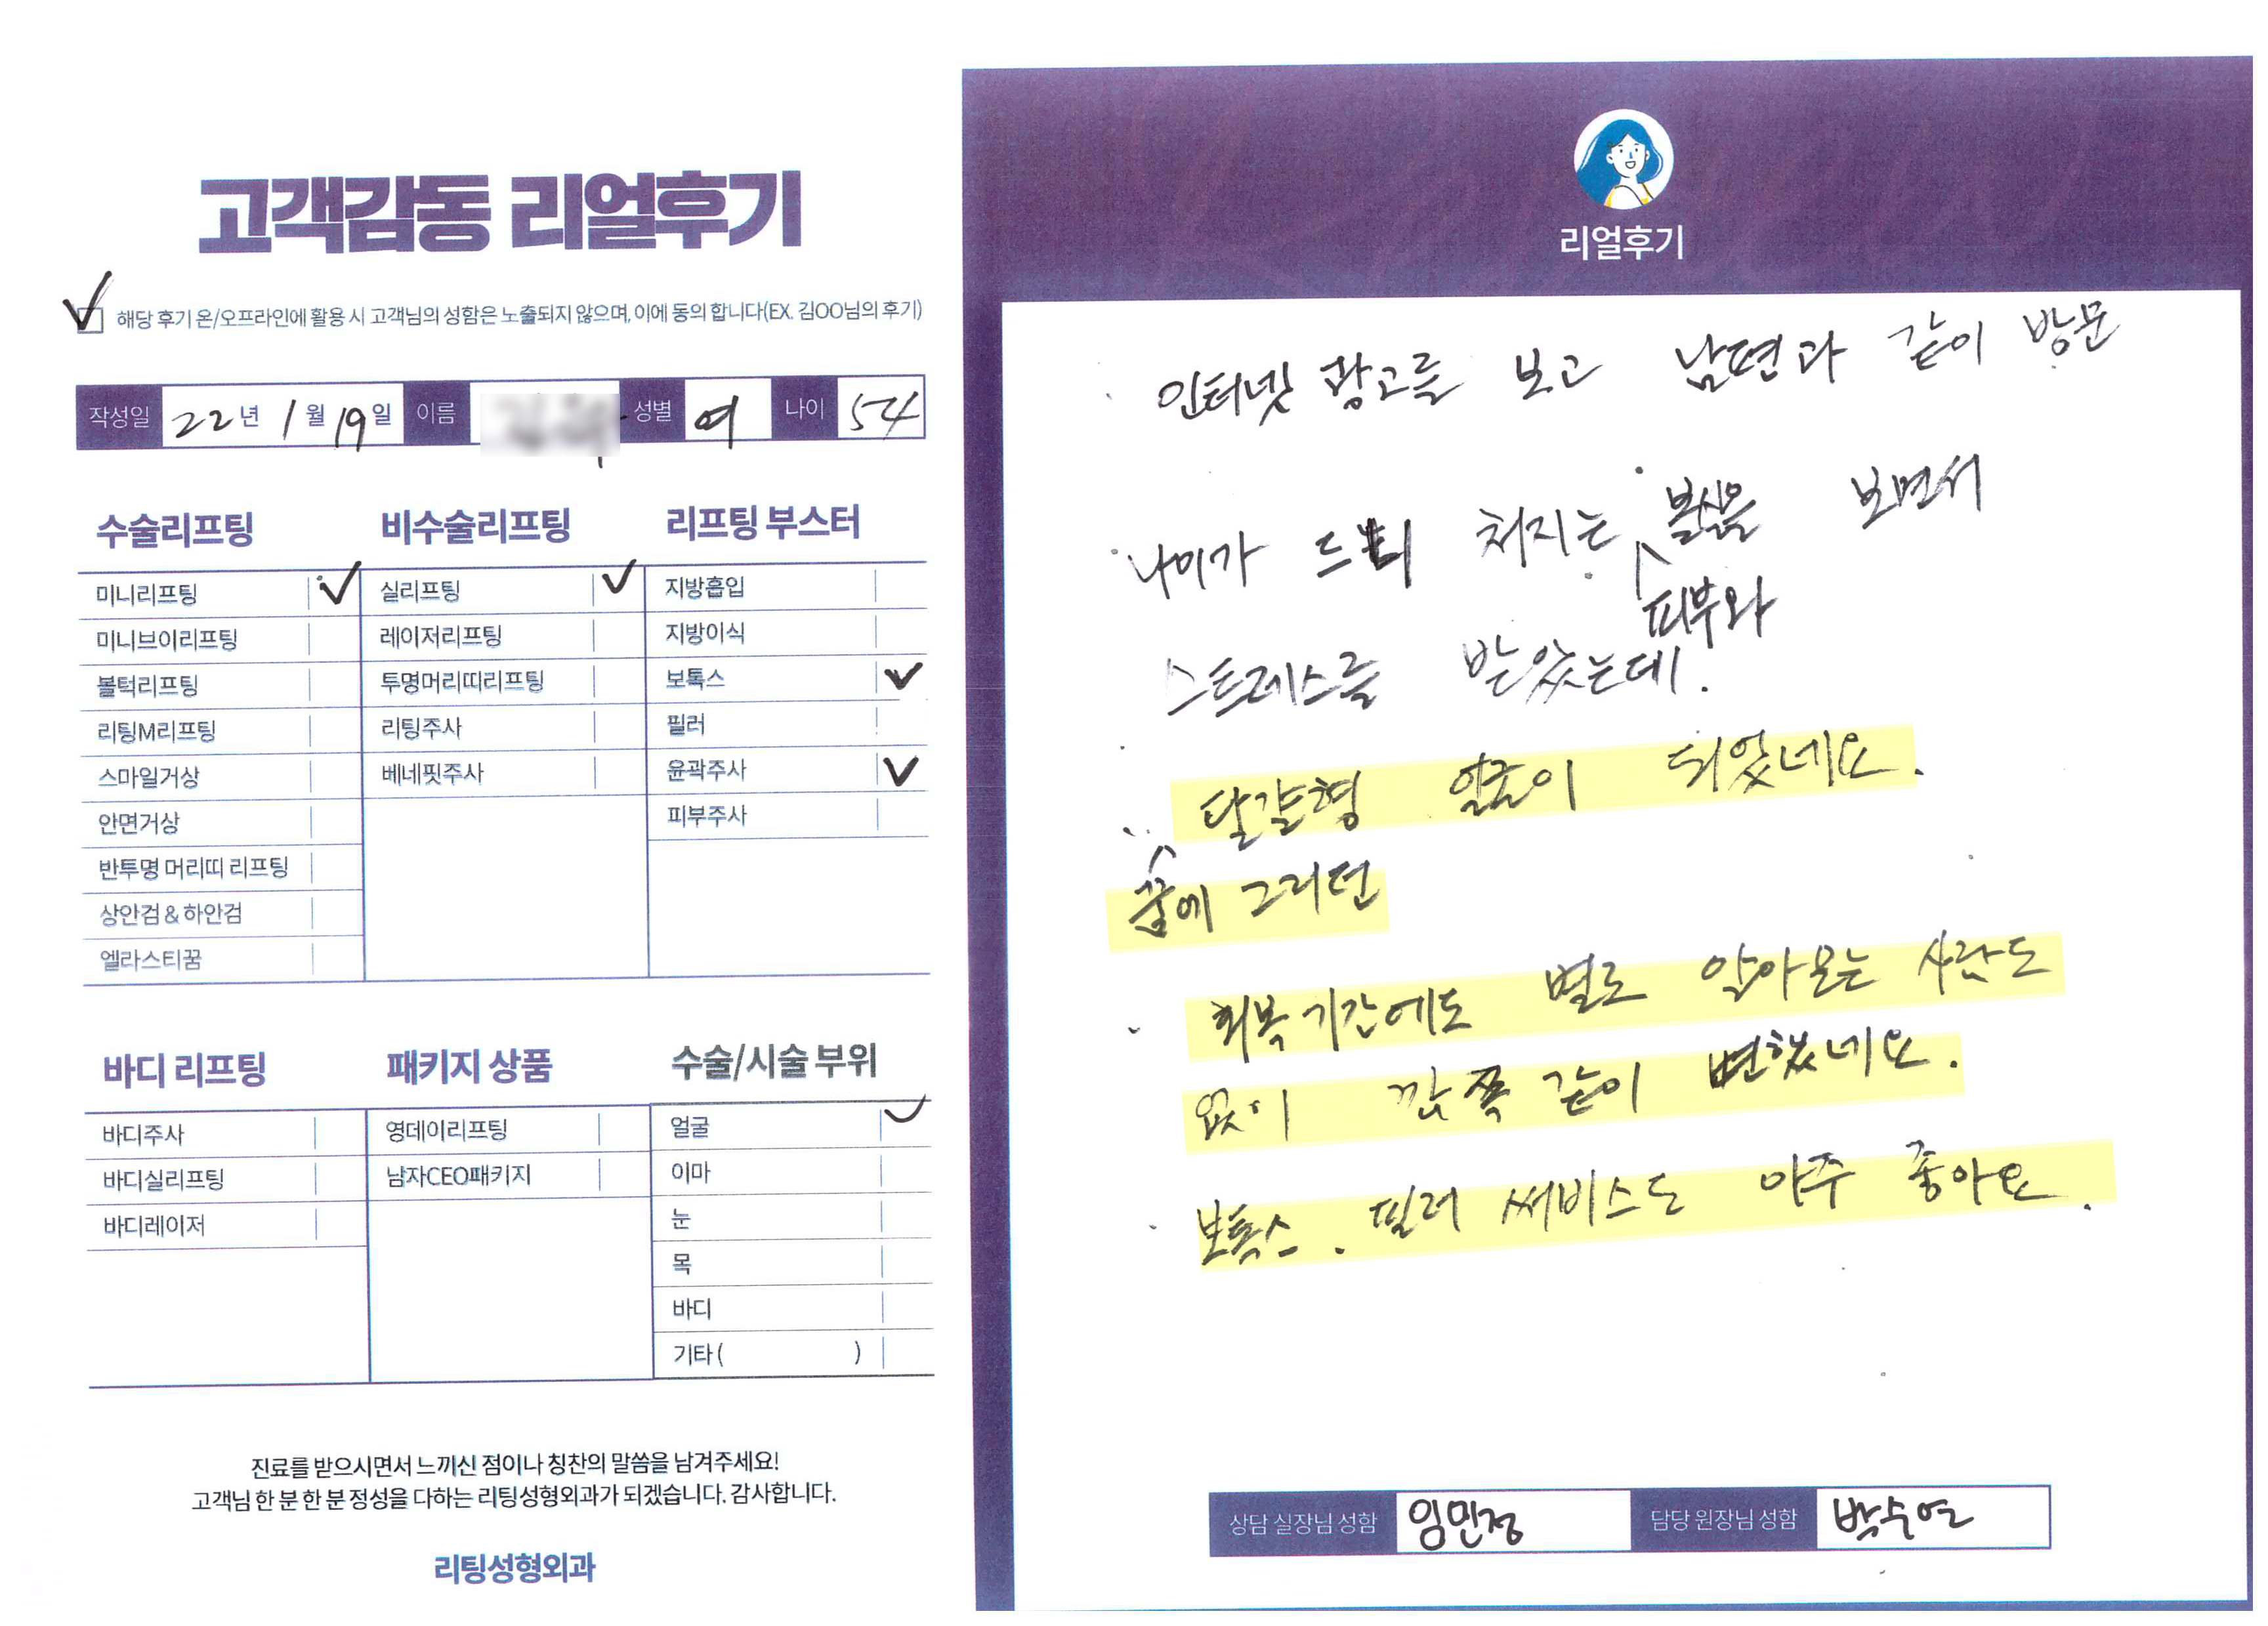 고객감동 리얼후기
해당 후기 온/오프라인에 활용 시 고객님의 성함은 노출되지 않으며, 이에 동의 합니다(EX. 김OO님의 후기)
작성일 22년 1월 19일 이름 성별 여 나이 54
수술리프팅
미니리프팅
미니브이리프팅
볼턱리프팅
리팅M리프팅
스마일거상
안면거상
반투명 머리띠 리프팅
상안검 & 하안검
엘라스티꿈
비수술리프팅
실리프팅
레이저리프팅
투명머리띠리프팅
리팅주사
베네핏주사
리프팅 부스터
지방흡입
지방이식
보톡스
필러
윤곽주사
피부주사
바디 리프팅
바디주사
바디실리프팅
바디레이저
패키지 상품
영데이리프팅
남자CEO패키지
수술/시술 부위
얼굴
이마
눈
목
바디
기타 ( )
진료를 받으시면서 느끼신 점이나 칭찬의 말씀을 남겨주세요!
고객님 한 분 한 분 정성을 다하는 리팅성형외과가 되겠습니다. 감사합니다.
리팅성형외과
리얼후기
인터넷 광고를 보고 남편과 같이 방문
나이가 처지는 볼살을 보면서
피부와
스트레스를 받았는데.
달걀형 얼굴이 되었네요.
꿈에 그리던
회복기간에도 별로 알아보는 사람도
없이 감쪽 같이 변했네요.
보톡스. 필러 써비스도 아주 좋아요.
상담 실장님 성함 임민정 담당 원장님 성함 박수연